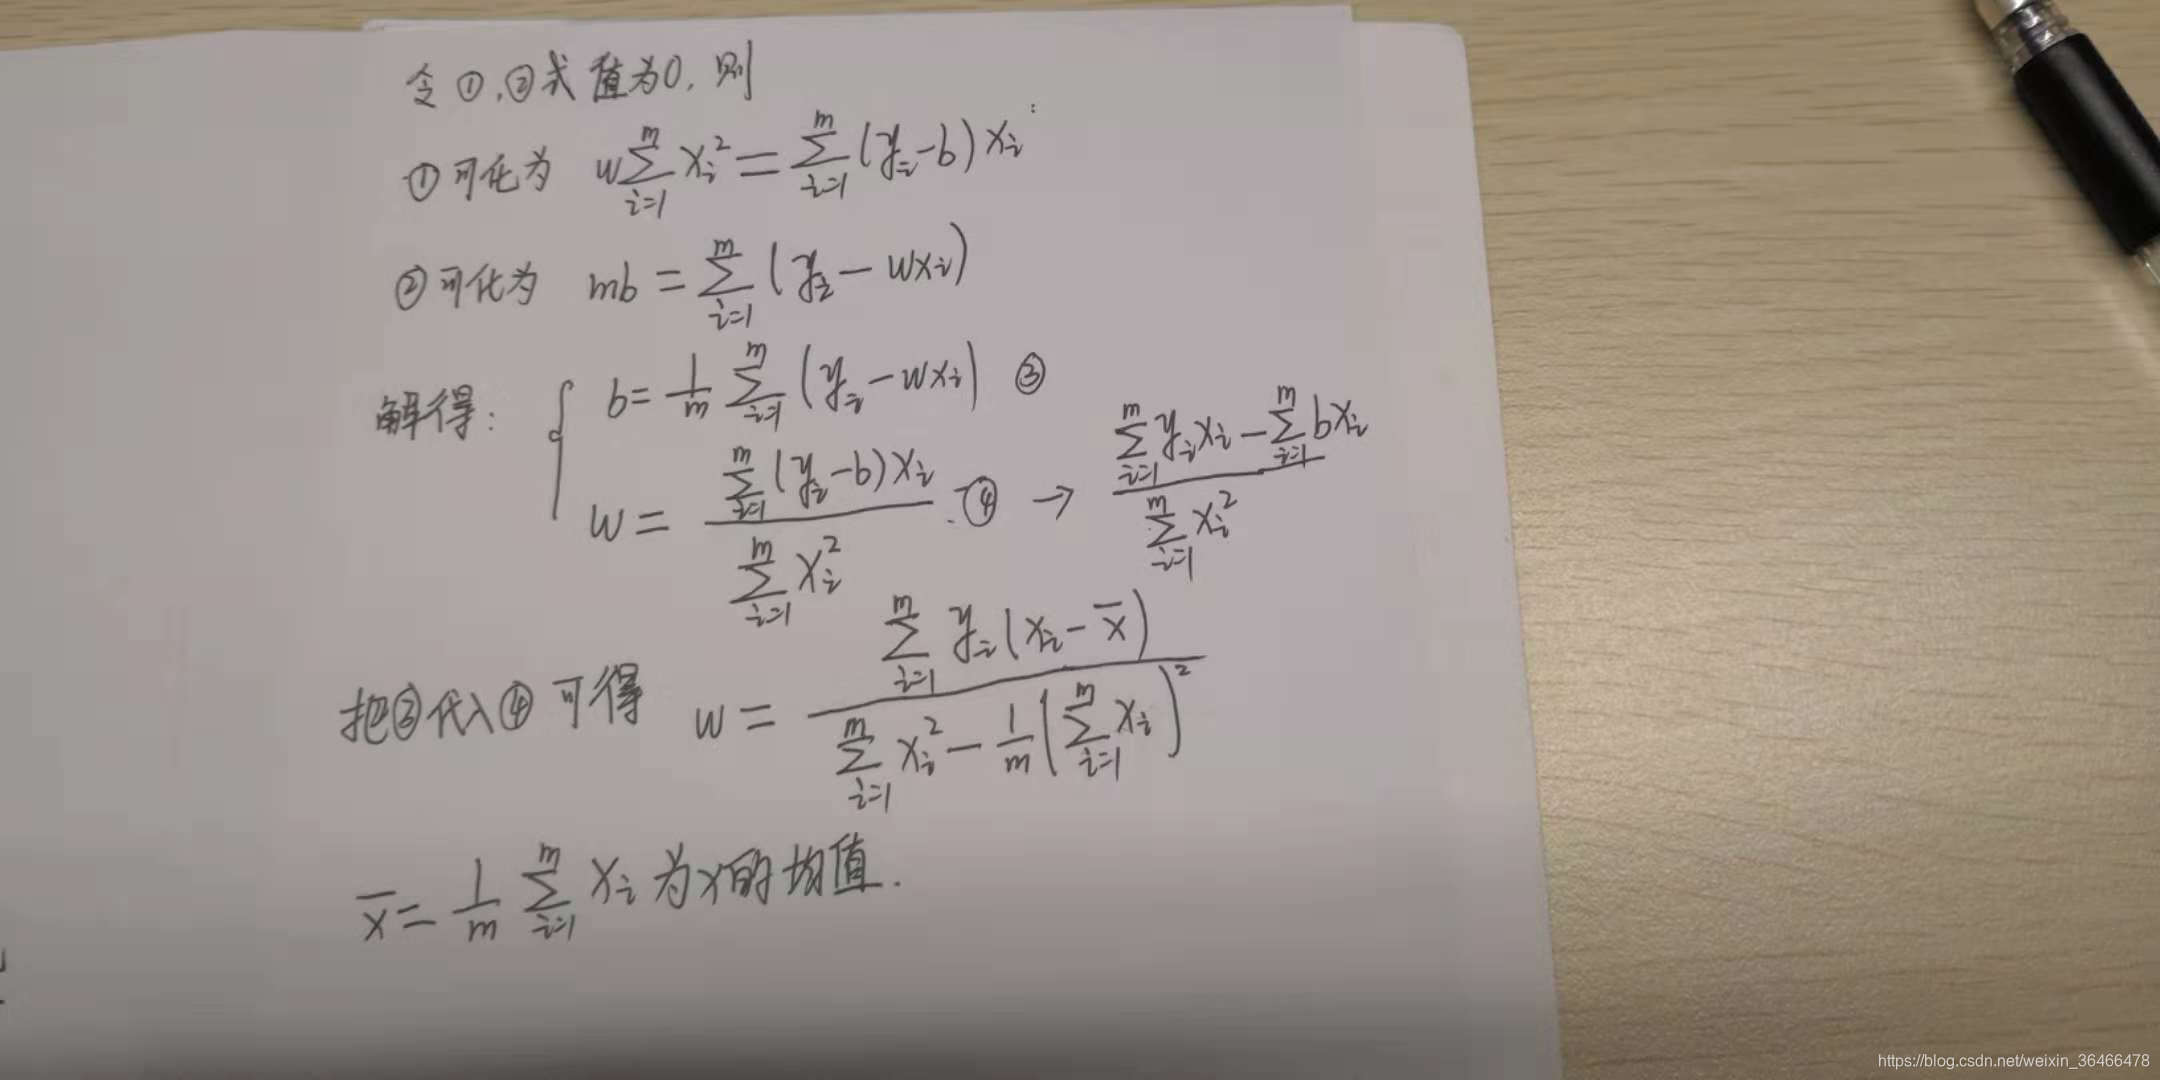 令①,②式值为0,则
①可化为 w∑_{i=1}^{m} x_i^2 = ∑_{i=1}^{m} (y_i - b) x_i
②可化为 mb = ∑_{i=1}^{m} (y_i - wx_i)
解得: { b = \frac{1}{m} ∑_{i=1}^{m} (y_i - wx_i) ③
w = \frac{∑_{i=1}^{m} (y_i - b) x_i}{∑_{i=1}^{m} x_i^2} ④ → \frac{∑_{i=1}^{m} y_i x_i - ∑_{i=1}^{m} bx_i}{∑_{i=1}^{m} x_i^2}
把③代入④可得 w = \frac{∑_{i=1}^{m} y_i (x_i - \overline{x})}{∑_{i=1}^{m} x_i^2 - \frac{1}{m} (∑_{i=1}^{m} x_i)^2}
\overline{x} = \frac{1}{m} ∑_{i=1}^{m} x_i 为x的均值.
https://blog.csdn.net/weixin_36466478